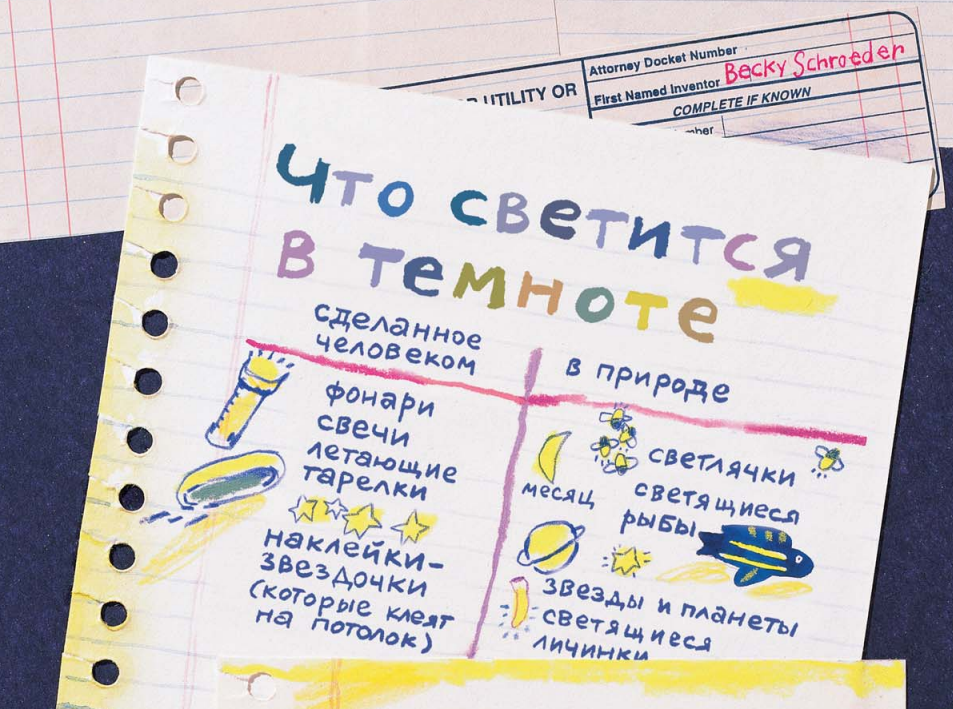 UTILITY OR
Attorney Docket Number
First Named Inventor Becky Schroeder
COMPLETE IF KNOWN
Что светится
в темноте
сделанное
человеком
фонари
свечи
летающие
тарелки
наклейки-
звездочки
(которые клеят
на потолок)
в природе
светлячки
месяц
светящиеся
рыбы
звезды и планеты
светящиеся
личинки